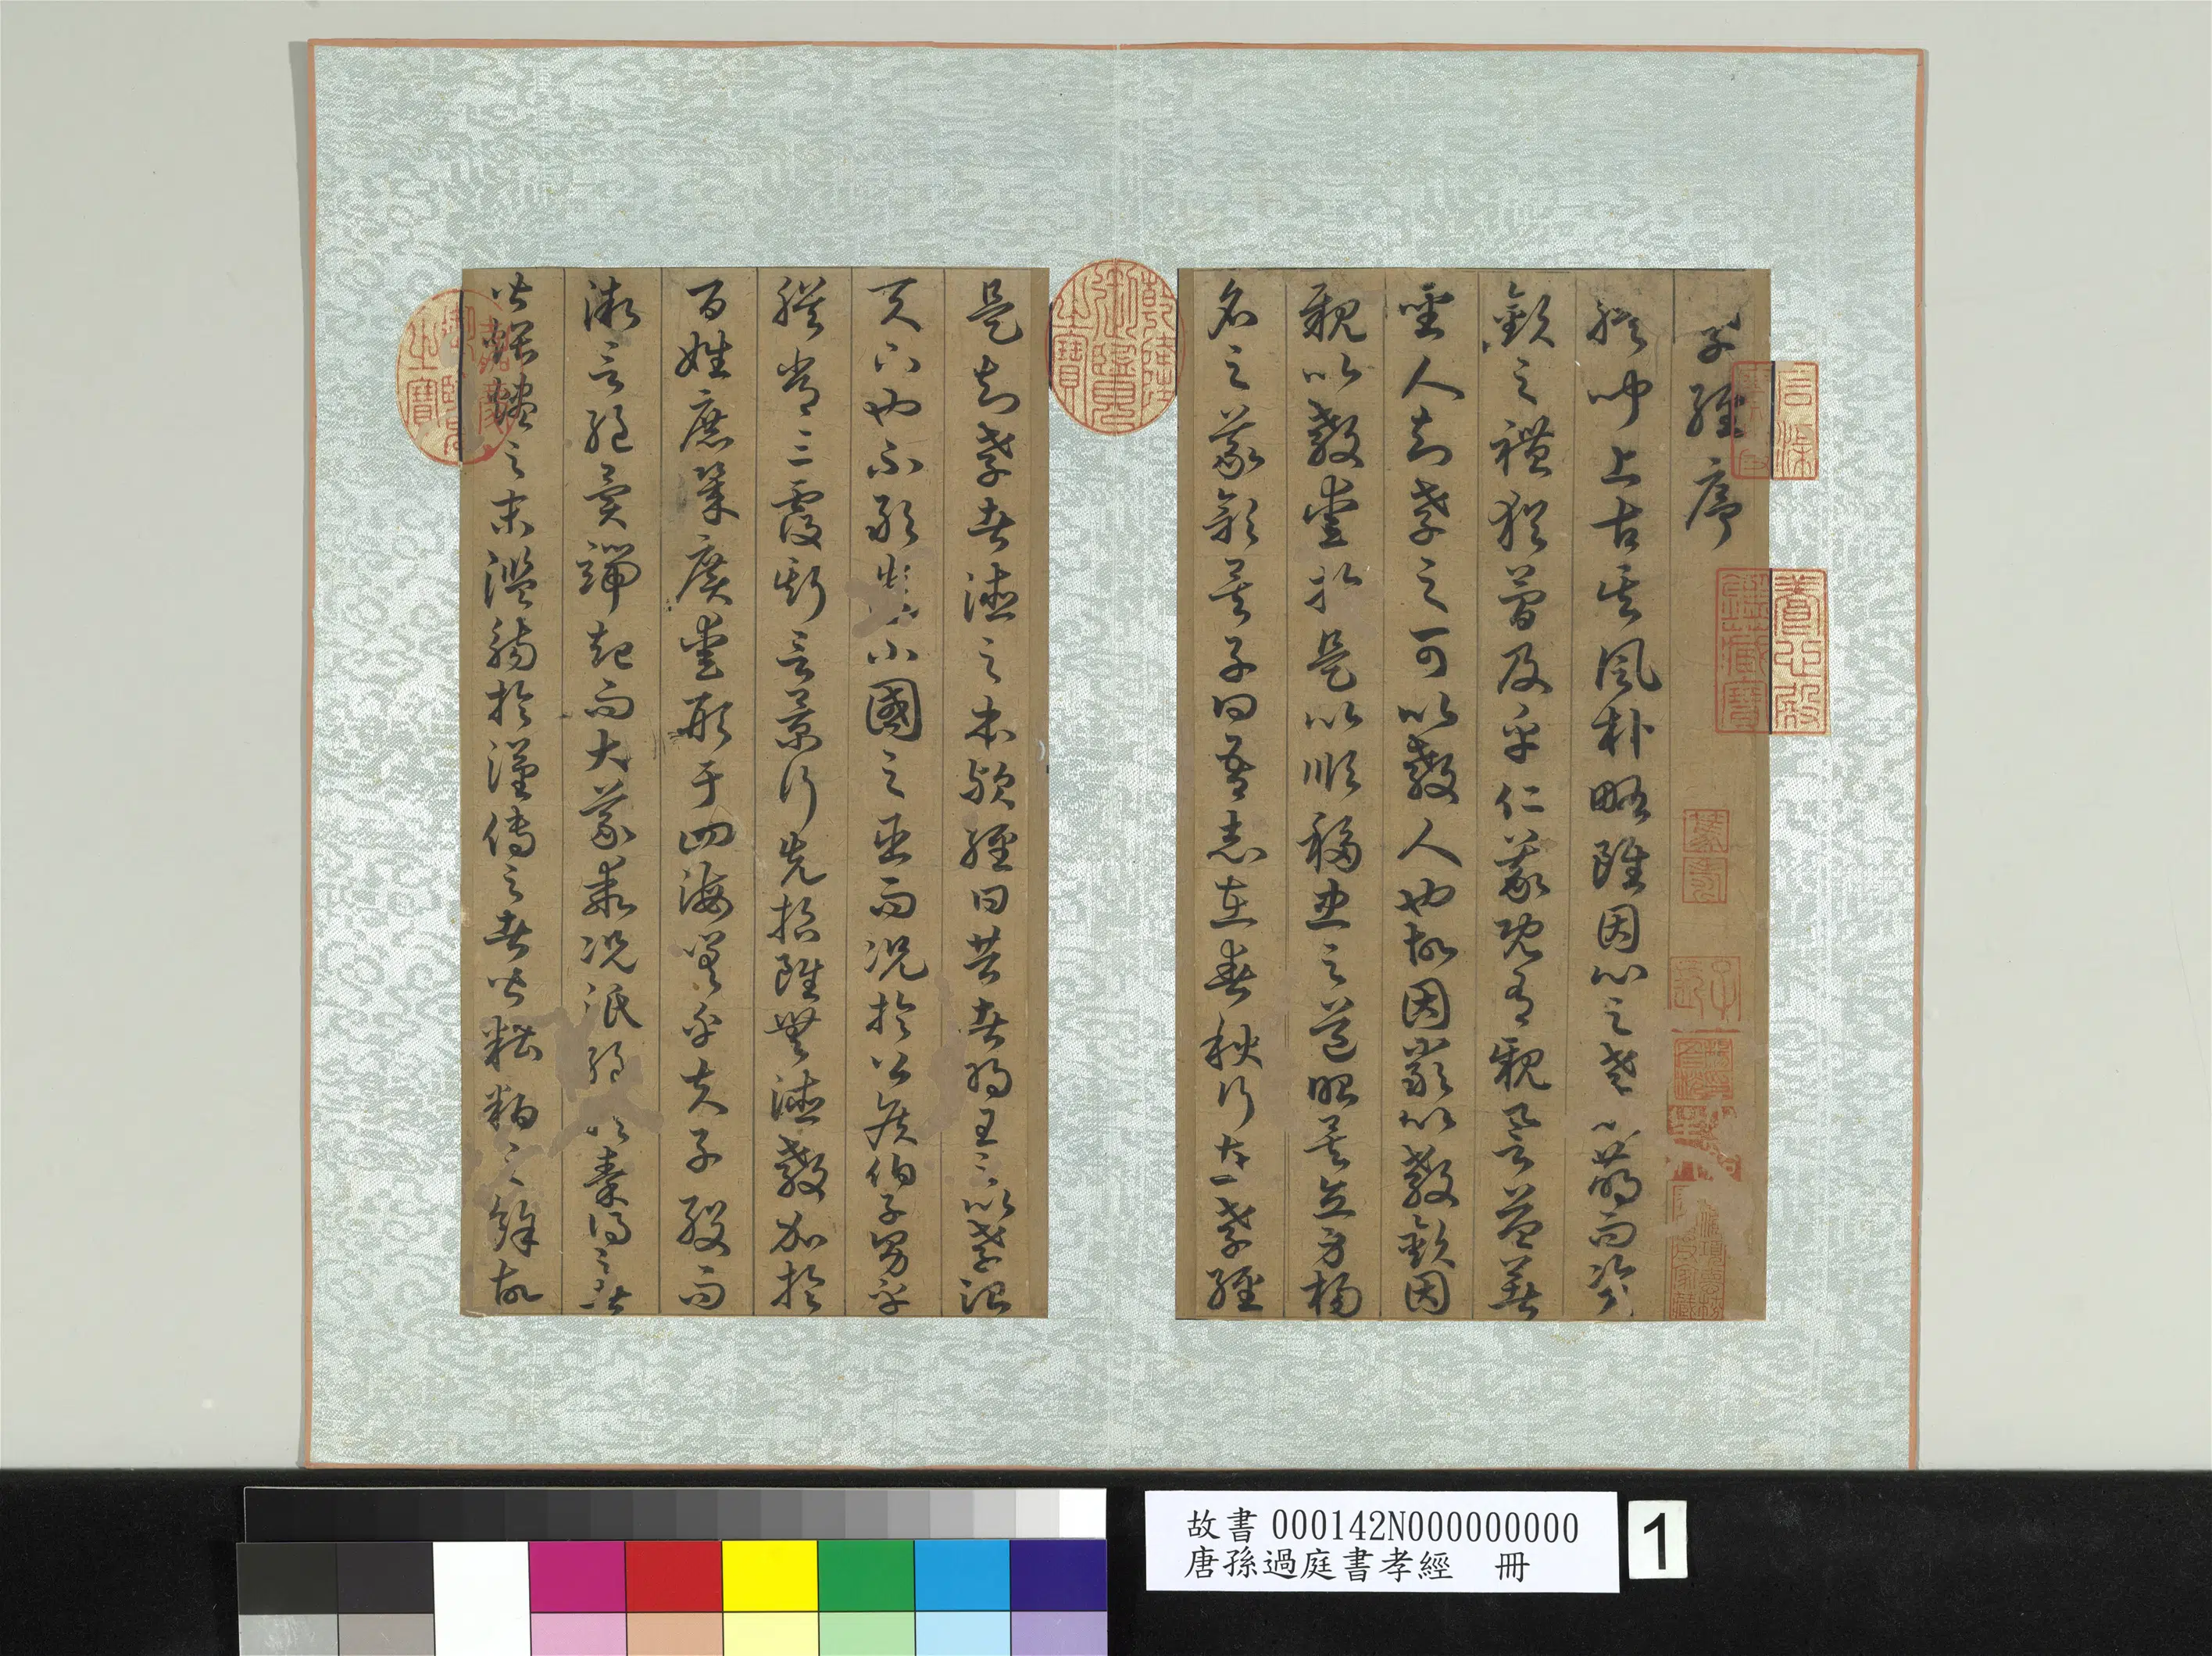 孝經序
朕聞上古其風朴略雖因心之孝以萌而資
敬之禮猶簡及乎仁義既有親譽益著
聖人知孝之可以教人也故因嚴以教敬因
親以教愛於是以順移忠之道昭矣立身揚
名之義彰矣子曰吾志在春秋行在孝經
是知孝者德之本歟經曰昔者明王之以孝理
天下也不敢遺小國之臣而況於公侯伯子男乎
朕嘗三復斯言景行先哲雖無德教加於
百姓庶幾廣愛形于四海嗟乎夫子歿而
微言絕異端起而大義乖況泯絕於秦得之者
皆煨燼之末濫觴於漢傳之者皆糟粕之餘故
養心殿鑑藏寶
乾隆御覽之寶
嘉慶御覽之寶
故書 000142N000000000
唐孫過庭書孝經 冊
1